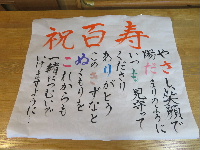 祝百寿
やさしい笑顔で
陽だまりのように
いつも見守って
くださり
ありがとう
このきずなと
ぬくもりを
これからも
一緒につむいで
いけますように…